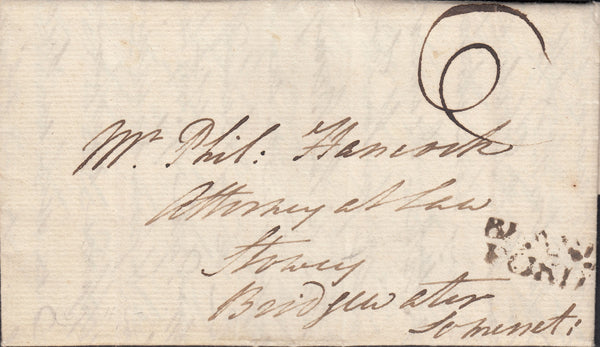 6
Mr Phil: Hancock
Attorney at Law
Stowey
Bridgewater
Somerset:
BLAND
FORD